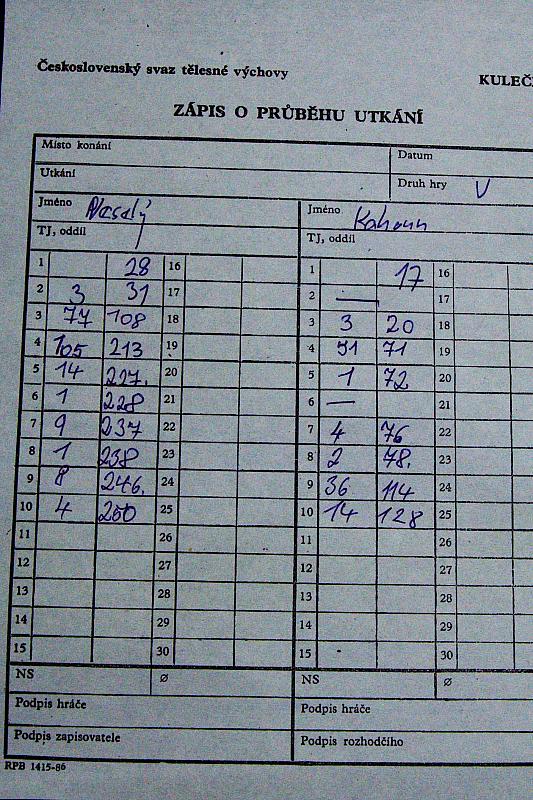 Československý svaz tělesné výchovy
KULEČ
ZÁPIS O PRŮBĚHU UTKÁNÍ
Místo konání
Datum
Utkání
Druh hry V
Jméno Veselý
Jméno Kahoun
TJ, oddíl
TJ, oddíl
1 28 16 1 17 16
2 3 31 17 2 — 17
3 77 108 18 3 3 20 18
4 105 213 19 4 51 71 19
5 14 227. 20 5 1 72 20
6 1 228 21 6 — 21
7 9 237 22 7 4 76 22
8 1 238 23 8 2 78. 23
9 8 246. 24 9 36 114 24
10 4 250 25 10 14 128 25
11 26 11 26
12 27 12 27
13 28 13 28
14 29 14 29
15 30 15 30
NS ø NS ø
Podpis hráče
Podpis hráče
Podpis zapisovatele
Podpis rozhodčího
RPB 1415-86